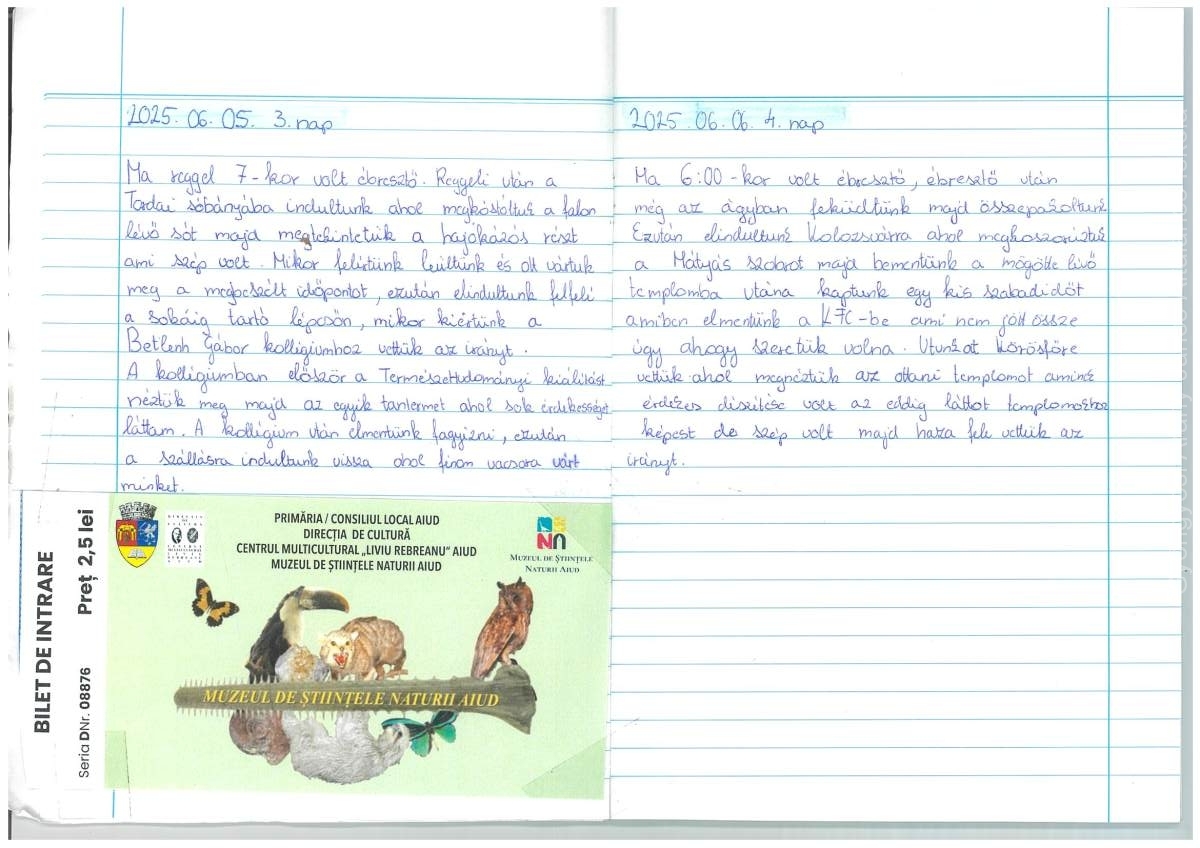 2025.06.05. 3. nap
Ma reggel 7-kor volt ébresztő. Reggeli után a
Tordai sóbányába indultunk ahol megkóstóltuk a falon
lévő sót majd megtekintetük a hajókázós részt
ami szép volt. Mikor felértünk leültünk és ott vártuk
meg a megbeszélt időpontot, ezután elindultunk felfelé
a sokáig tartó lépcsőn, mikor kiértünk a
Betlenh Gábor kollégiumhoz vettük az irányt.
A kollégiumban először a Természettudományi kiálitást
néztük meg majd az egyik tantermet ahol sok érdekességet
láttam. A kollégium után elmentünk fagyizni, ezután
a szállásra indultunk vissza ahol finom vacsora várt
minket.
BILET DE INTRARE
Seria DNr. 08876 Preț 2,5 lei
PRIMĂRIA / CONSILIUL LOCAL AIUD
DIRECȚIA DE CULTURĂ
CENTRUL MULTICULTURAL „LIVIU REBREANU" AIUD
MUZEUL DE ȘTIINȚELE NATURII AIUD
MUZEUL DE ȘTIINȚELE
NATURII AIUD
MUZEUL DE ȘTIINȚELE NATURII AIUD
2025.06.06. 4. nap
Ma 6:00-kor volt ébresztő, ébresztő után
még az ágyban feküdtünk majd összepakoltunk
Ezután elindultunk Kolozsvárra ahol meghoszorúztuk
a Mátyás szobrot majd bementünk a mögötte lévő
templomba utána kaptunk egy kis szabadidőt
amiben elmentünk a KFC-be ami nem jött össze
úgy ahogy szerettük volna. Utunkat Körösföre
vettük ahol megnéztük az ottani templomot aminek
érdekes díszitése volt az eddig láttot templomokhoz
képest de szép volt majd haza fele vettük az
irányt.